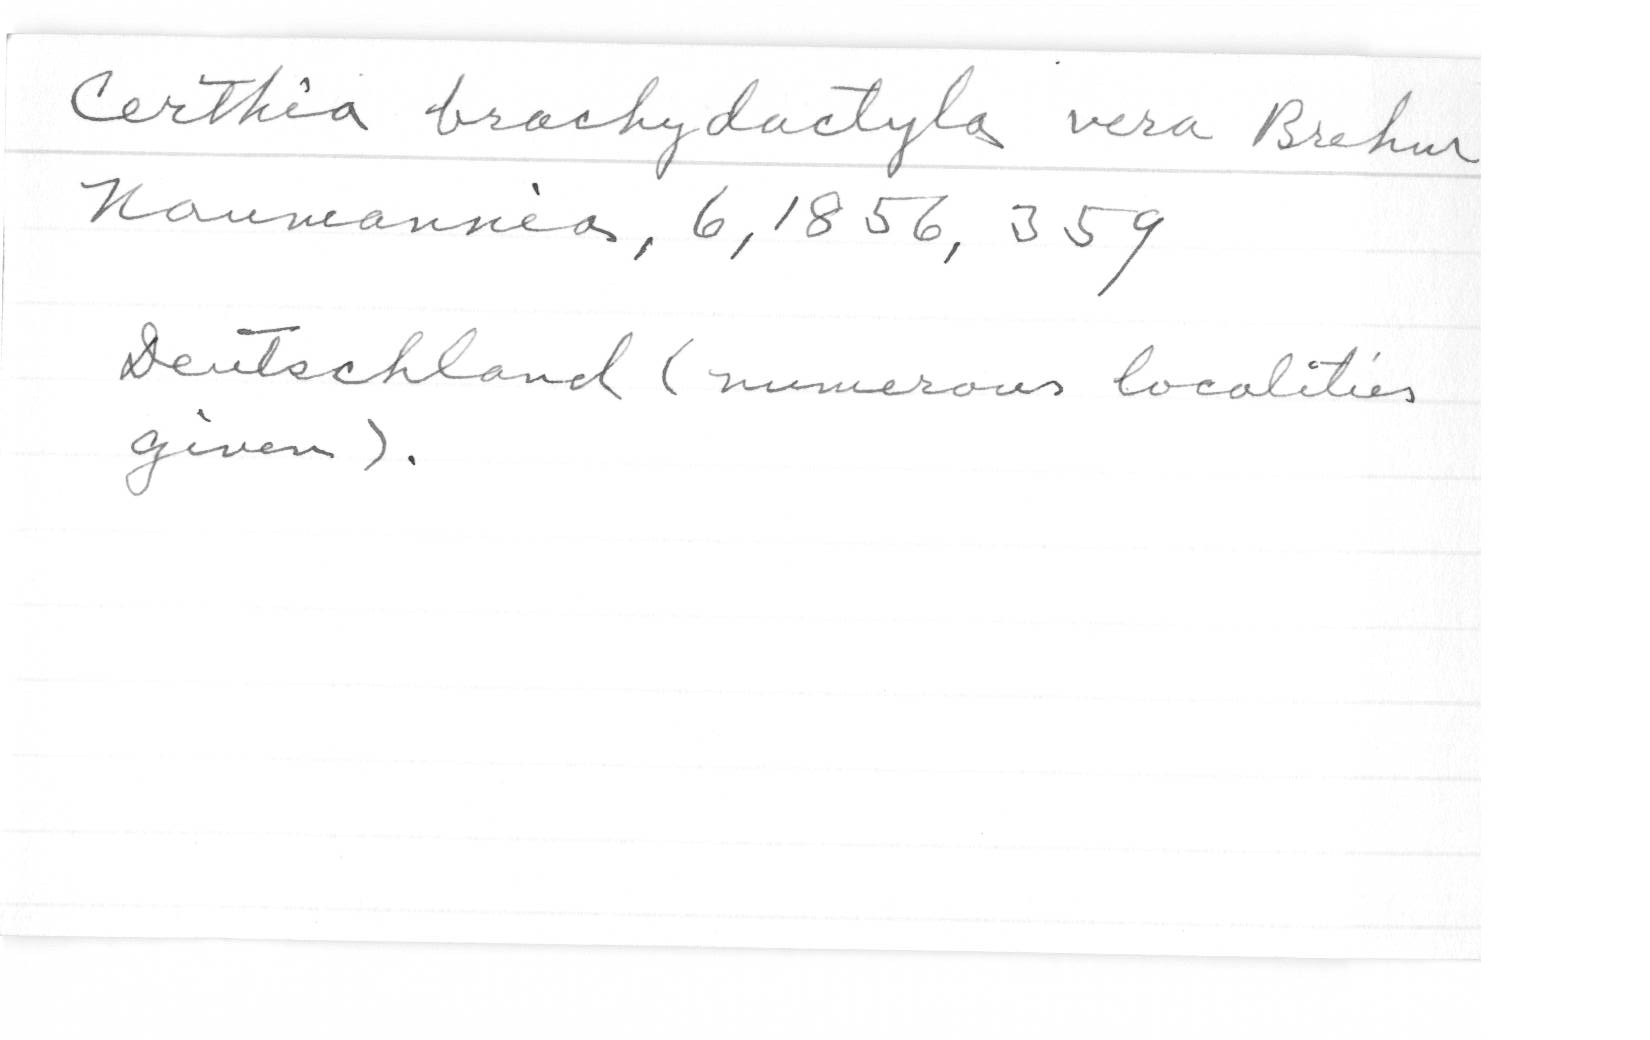 Certhia brachydactyla vera Brehm
Naumannia, 6, 1856, 359
Deutschland (numerous localities
given).